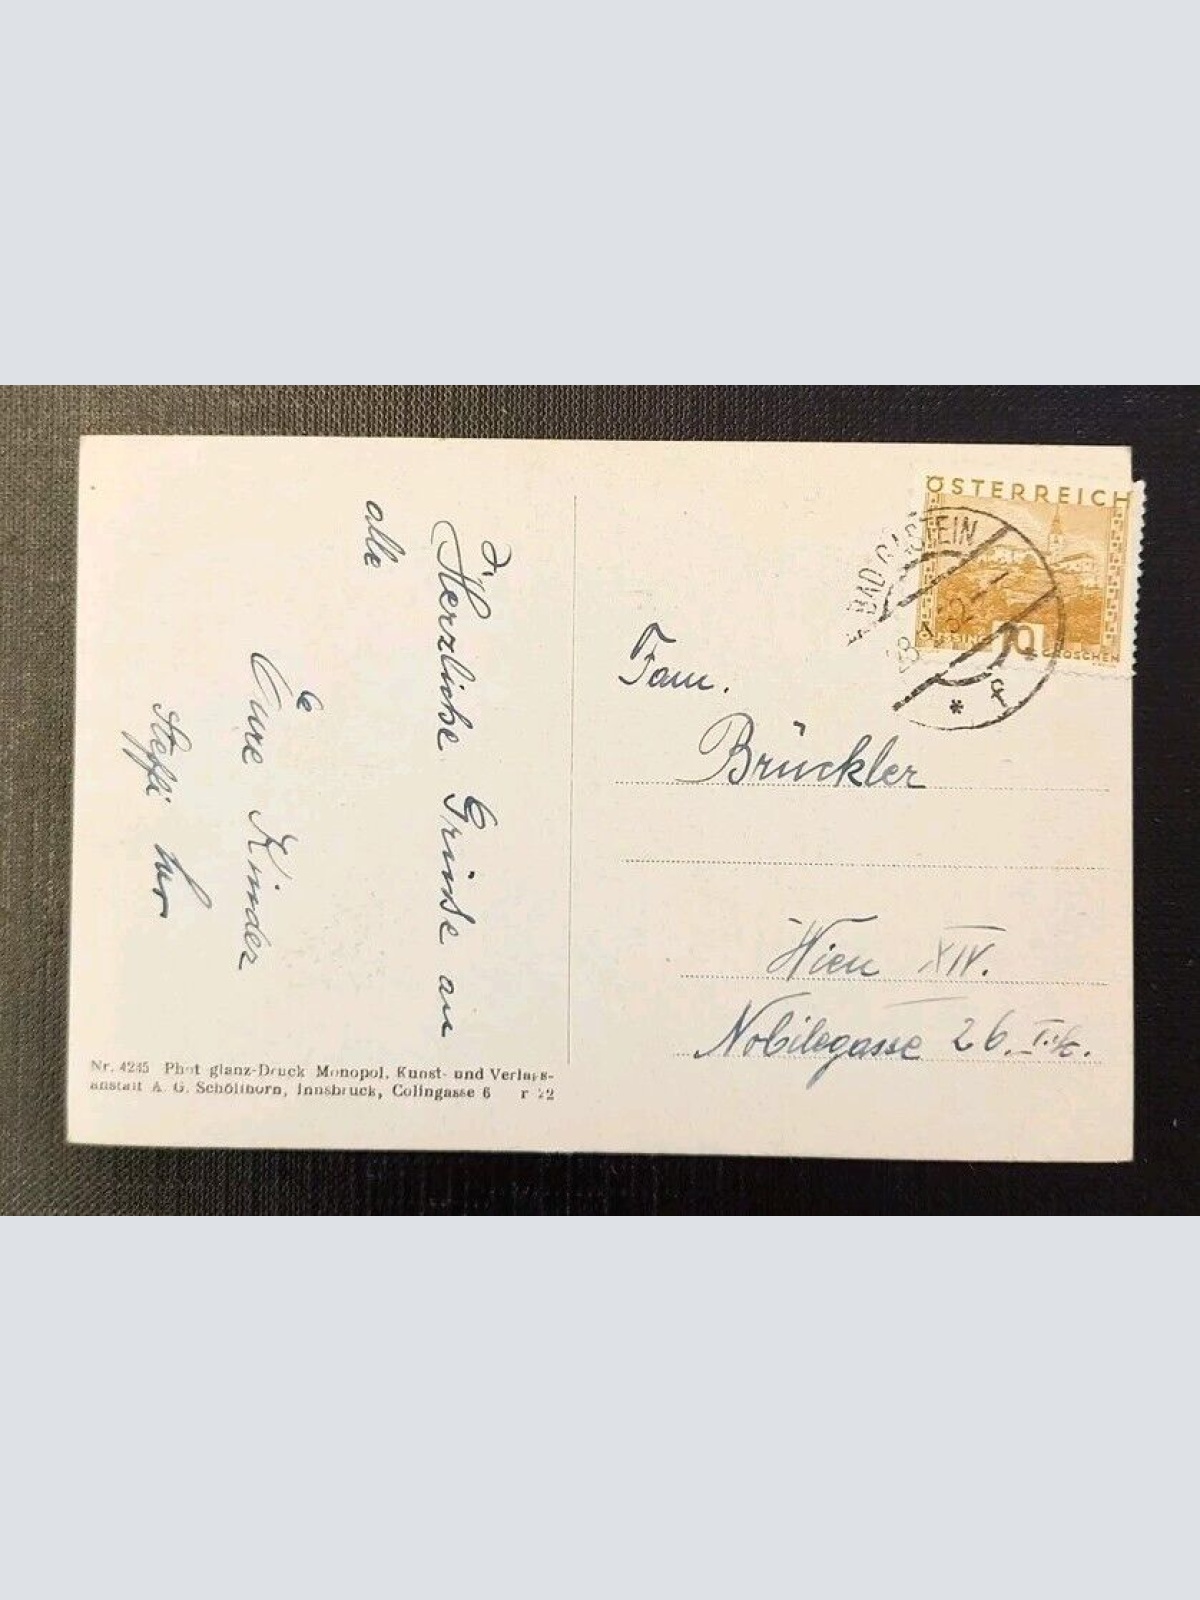 Herzliche Grüsse an
alle
Eure Kinder
Steffi
Nr. 4245 Phot glanz-Druck Monopol, Kunst- und Verlags-
anstalt A. G. Schöllhorn, Innsbruck, Colingasse 6 r 22
ÖSTERREICH
GÜSSING 10 GROSCHEN
BAD GASTEIN
Fam.
Brückler
Wien XIV.
Nobilegasse 26.